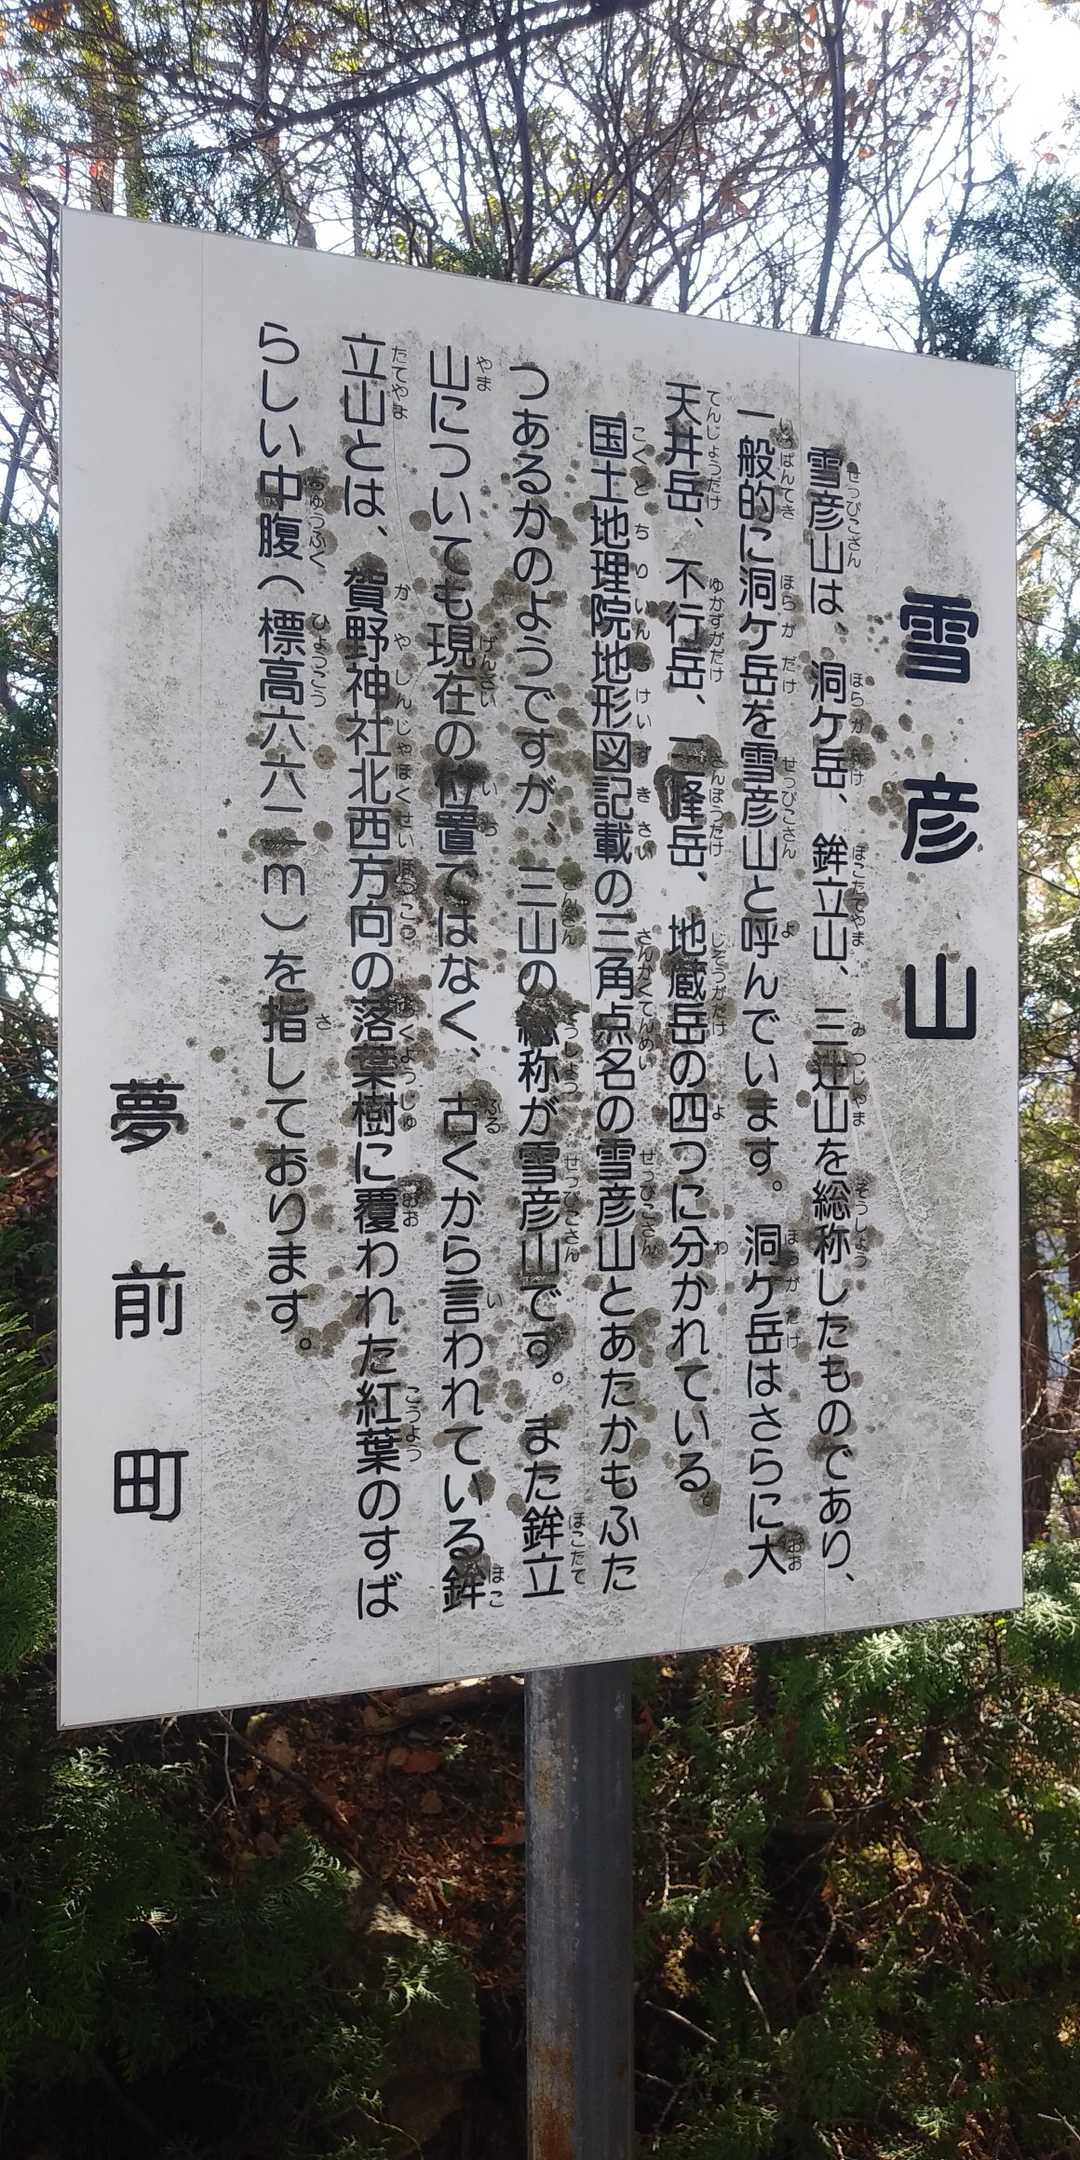 雪彦山
雪彦山は、洞ケ岳、鉾立山、三辻山を総称したものであり、
一般的に洞ケ岳を雪彦山と呼んでいます。洞ケ岳はさらに大
天井岳、不行岳、三峰岳、地蔵岳の四つに分かれている。
国土地理院地形図記載の三角点名の雪彦山とあたかもふた
つあるかのようですが、三山の総称が雪彦山です。また鉾立
山についても現在の位置ではなく、古くから言われている鉾
立山とは、賀野神社北西方向の落葉樹に覆われた紅葉のすば
らしい中腹(標高六六二m)を指しております。
夢前町